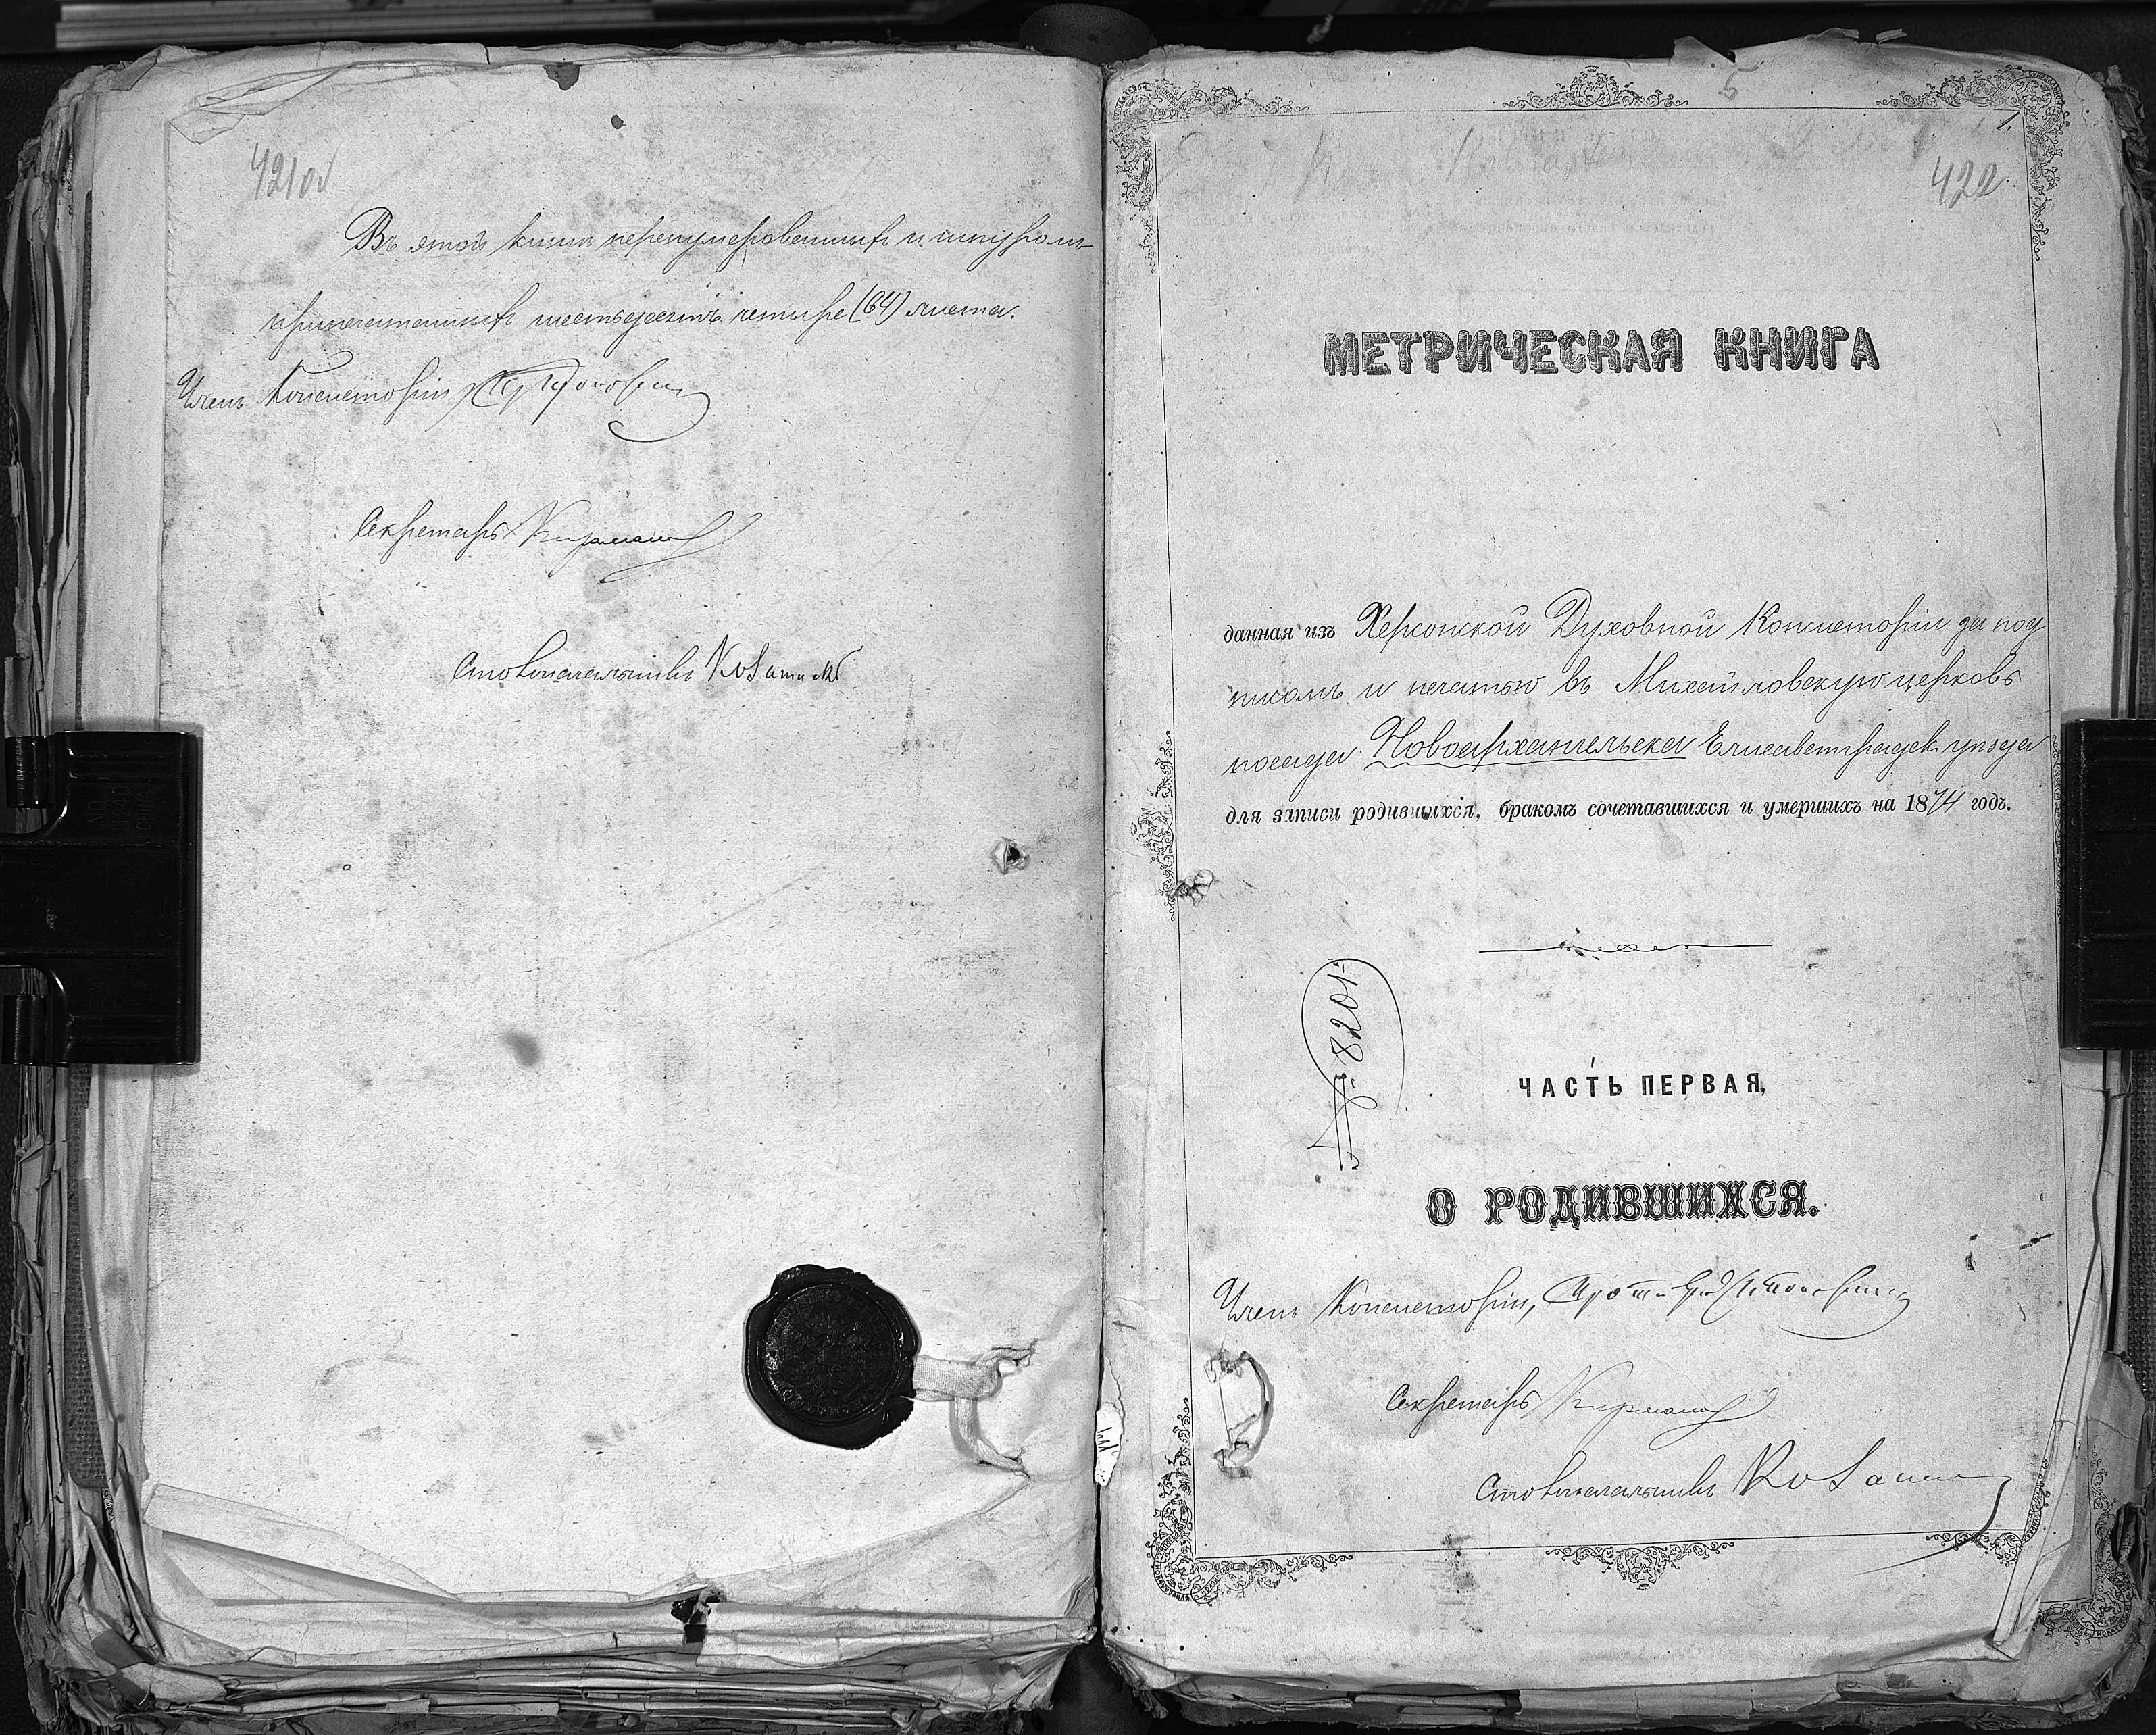 421об
Въ этой книгѣ перенумерованныхъ и шнуромъ
припечатанныхъ шестьдесятъ четыре (64) листа.
Членъ Консисторіи
Секретарь
Столоначальникъ
5
1.
422
МЕТРИЧЕСКАЯ КНИГА
данная изъ Херсонской Духовной Консисторіи за под
писомъ и печатью въ Михайловскую церковь
посада Новоархангельска Елисаветградск. уѣзда
для записи родившихся, бракомъ сочетавшихся и умершихъ на 1874 годъ.
№ 8201
ЧАСТЬ ПЕРВАЯ,
О РОДИВШИХСЯ.
Членъ Консисторіи,
Секретарь
Столоначальникъ